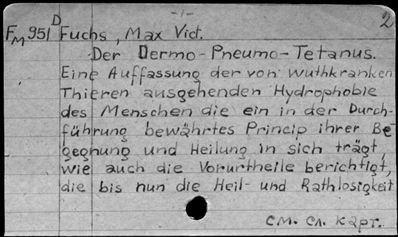 -1- 2
D
FM 951 Fuchs, Max Vict.
Der Dermo-Pneumo-Tetanus.
Eine Auffassung der von wuthkranken
Thieren ausgehenden Hydrophobie
des Menschen die ein in der Durch-
führung bewährtes Princip ihrer Be
gegnung und Heilung in sich trägt,
wie auch die Vorurtheile berichtigt,
die bis nun die Heil- und Rathlosigkeit
См. сл. карт.